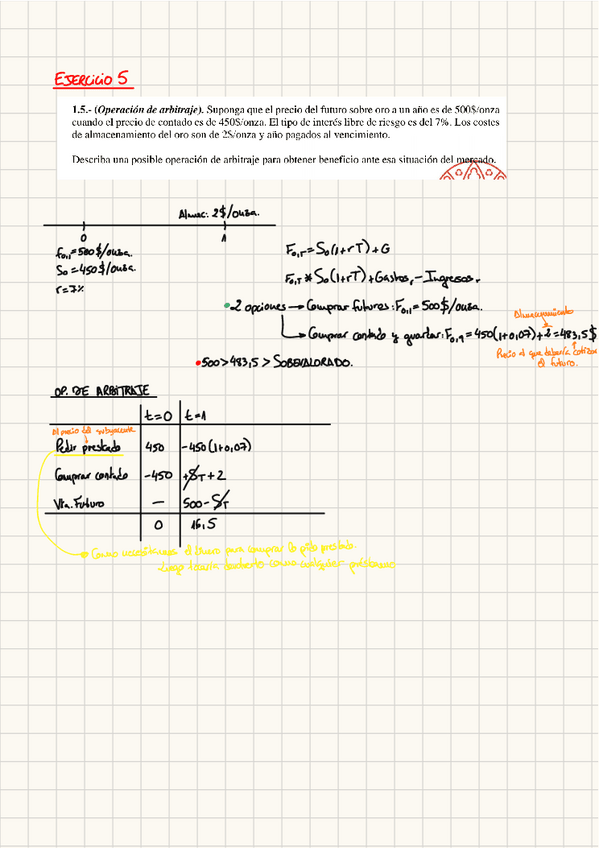 EJERCICIO 5
1.5.- (Operación de arbitraje). Suponga que el precio del futuro sobre oro a un año es de 500$/onza
cuando el precio de contado es de 450$/onza. El tipo de interés libre de riesgo es del 7%. Los costes
de almacenamiento del oro son de 2$/onza y año pagados al vencimiento.
Describa una posible operación de arbitraje para obtener beneficio ante esa situación del mercado.
Almac: 2$/onza.
0 1
F0,1=500$/onza.
S0=450$/onza.
r=7%
F0,T=S0(1+rT)+G
F0,T * S0(1+rT)+Gastos, - Ingresos,
2 opciones → Comprar futuros: F0,1 = 500$/onza.
Almacenamiento
→ Comprar contado y guardar: F0,1 = 450(1+0,07)+2 = 483,5$
Precio al que debería cotizar
el futuro.
500>483,5 > SOBREVALORADO.
OP. DE ARBITRAJE
t=0 t=1
El precio del subyacente
Pedir prestado 450 -450(1+0,07)
Comprar contado -450 +ST+2
Vta. Futuro — 500-ST
0 16,5
Como necesitamos el dinero para comprar lo pido prestado.
-Luego devuelto como cualquier préstamo